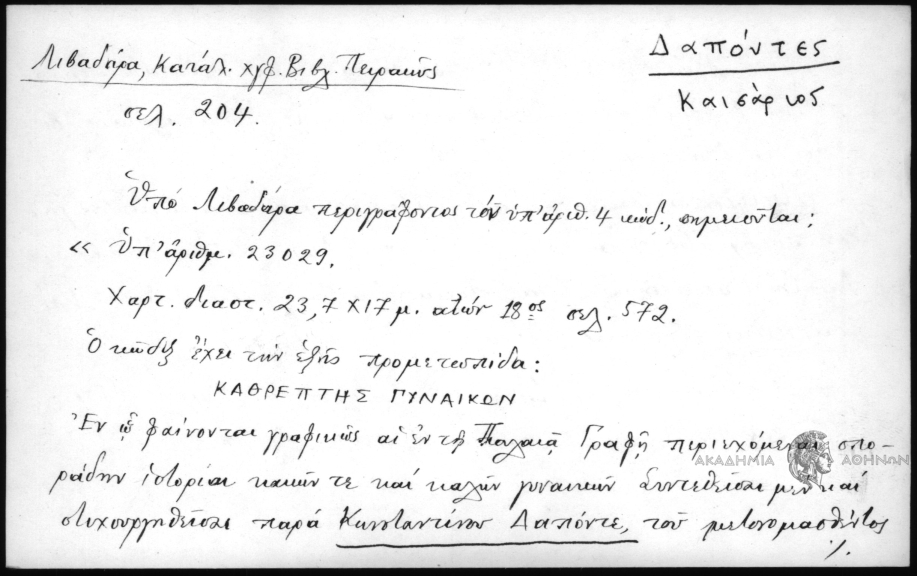 Λιβαδάρα, Κατάλ. χγφ. Βιβλ. Πειραιῶς
Δαπόντες
Καισάριος
σελ. 204.
Ὑπό Λιβαδάρα περιγράφοντος τόν ὑπ' ἀριθ. 4 κώδ., σημειοῦται:
« Ὑπ' ἀριθμ. 23029.
Χαρτ. διαστ. 23,7 Χ 17 μ. αἰών 18ος σελ. 572.
Ὁ κῶδιξ ἔχει τήν ἑξῆς προμετωπίδα:
ΚΑΘΡΕΠΤΗΣ ΓΥΝΑΙΚΩΝ
Ἐν ᾧ φαίνονται γραφικῶς αἱ ἐν τῇ Παλαιᾷ Γραφῇ περιεχόμεναι σπο-
ράδην ἱστορίαι κακῶν τε καί καλῶν γυναικῶν Συντεθεῖσαι μέν καί
στιχουργηθεῖσαι παρά Κωνσταντίνου Δαπόντε, τοῦ μετονομασθέντος
./.
ΑΚΑΔΗΜΙΑ ΑΘΗΝΩΝ